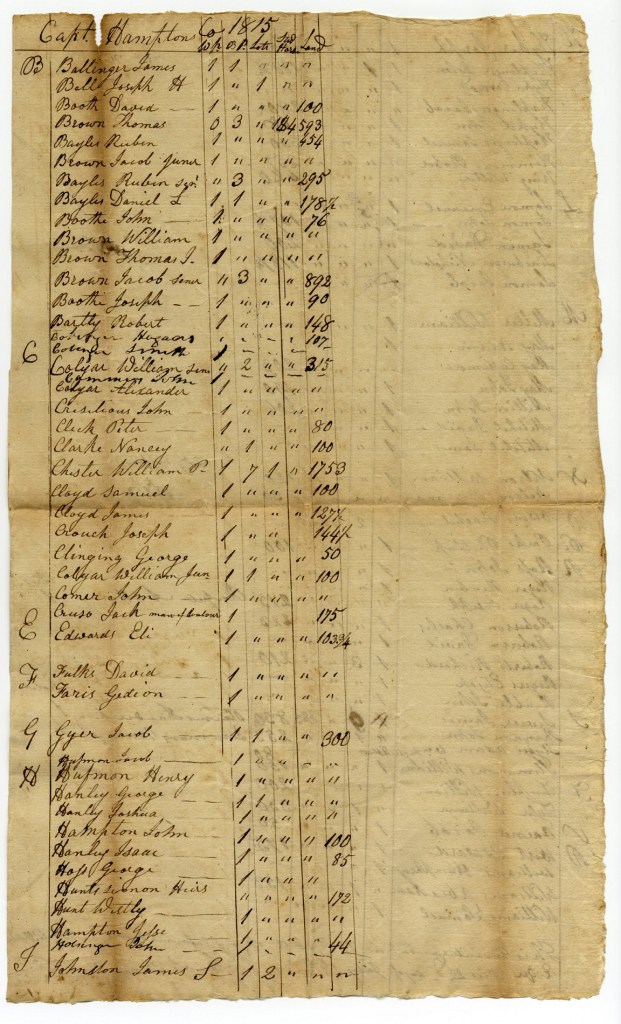 Capt. Hamptons Co 1815
Wp Bp. Lots Hors Land
B Ballinger James 1 1 " " "
Bell Joseph H 1 " 1 " "
Booth David — 1 " " " 100
Brown Thomas 0 3 " 4593
Bayles Rubin 1 " " " 454
Brown Jacob Juner 1 " " " "
Bayles Rubin senr " 3 " " 295
Bayles Daniel L 1 1 " " 178½
Boothe John — 1 " " " 76
Brown William 1 " " " "
Brown Thomas J. 1 " " " "
Brown Jacob Sener " 3 " " 892
Boothe Joseph — — 1 " " " 90
Bartly Robert 1 " " " 148
107
C
Colyar William Sen " 2 " " 315
John
Colyar Alexander
Criselious John — 1 " " " "
Click Peter — 1 " " " 80
Clarke Nancey " 1 " " 100
Chester William P. 1 7 1 " 1753
Cloyd Samuel 1 " " " 100
Cloyd James 1 " " " 127½
Crouch Joseph 1 " " 144½
Clinging George 1 " " " 50
Colyar William Jun 1 1 " " 100
Comer John 1 " " " "
Cruso Jack man of Coulour 1 175
E Edwards Eli 1 " " " 103¾
F Fulks David — 1 " " " "
Faris Gedion — 1 " " " "
G Gyer Jacob — 1 1 " " 300
Hufmon Jacob — 1 " " " "
H Hufmon Henry 1 " " " "
Hanley George — 1 1 " " "
Hanly Joshua — 1 " " " "
Hampton John — 1 " " " 100
Hanley Isaac — 1 " " " 85
Hoss George — 1 " " " "
Hunts simon Heirs " " " " 172
Hunt Wittly — 1 " " " "
Hampton Jesse 1 " " " 44
John
J Johnston James S— 1 2 " " "